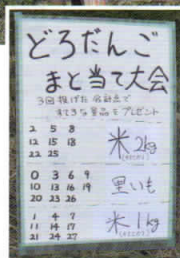 どろだんご
まと当て大会
3回投げた合計点で
すてきな景品をプレゼント
2 5 8
12 15 18
22 25
米2kg
0 3 6 9
10 13 16 19
20 23 26
里いも
1 4 7
11 14 17
21 24 27
米1kg